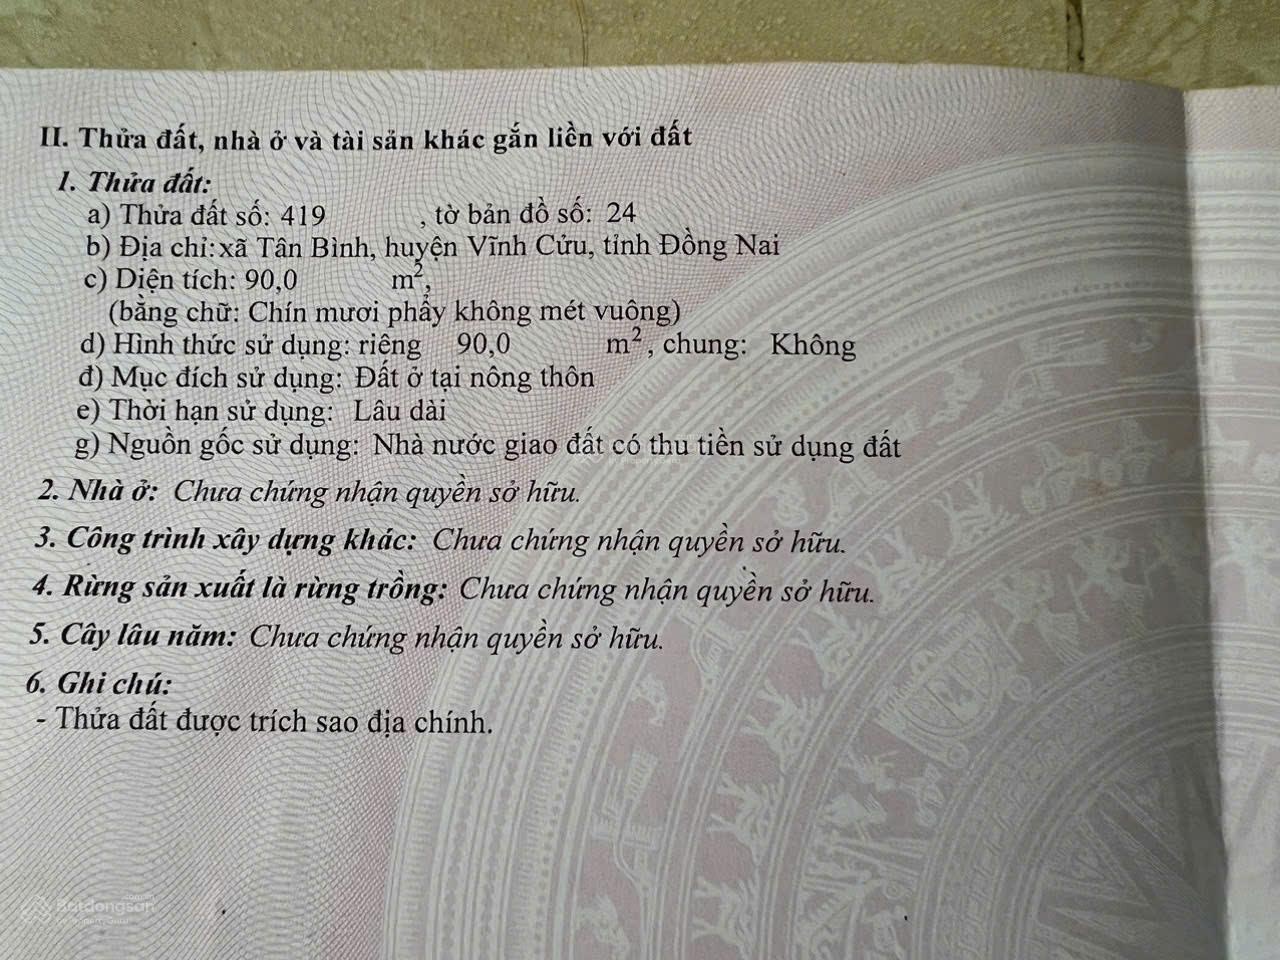 II. Thửa đất, nhà ở và tài sản khác gắn liền với đất
1. Thửa đất:
a) Thửa đất số: 419 , tờ bản đồ số: 24
b) Địa chỉ:xã Tân Bình, huyện Vĩnh Cửu, tỉnh Đồng Nai
c) Diện tích: 90,0 m²,
(bằng chữ: Chín mươi phẩy không mét vuông)
d) Hình thức sử dụng: riêng 90,0 m² , chung: Không
đ) Mục đích sử dụng: Đất ở tại nông thôn
e) Thời hạn sử dụng: Lâu dài
g) Nguồn gốc sử dụng: Nhà nước giao đất có thu tiền sử dụng đất
2. Nhà ở: Chưa chứng nhận quyền sở hữu.
3. Công trình xây dựng khác: Chưa chứng nhận quyền sở hữu.
4. Rừng sản xuất là rừng trồng: Chưa chứng nhận quyền sở hữu.
5. Cây lâu năm: Chưa chứng nhận quyền sở hữu.
6. Ghi chú:
- Thửa đất được trích sao địa chính.
Batdongsan